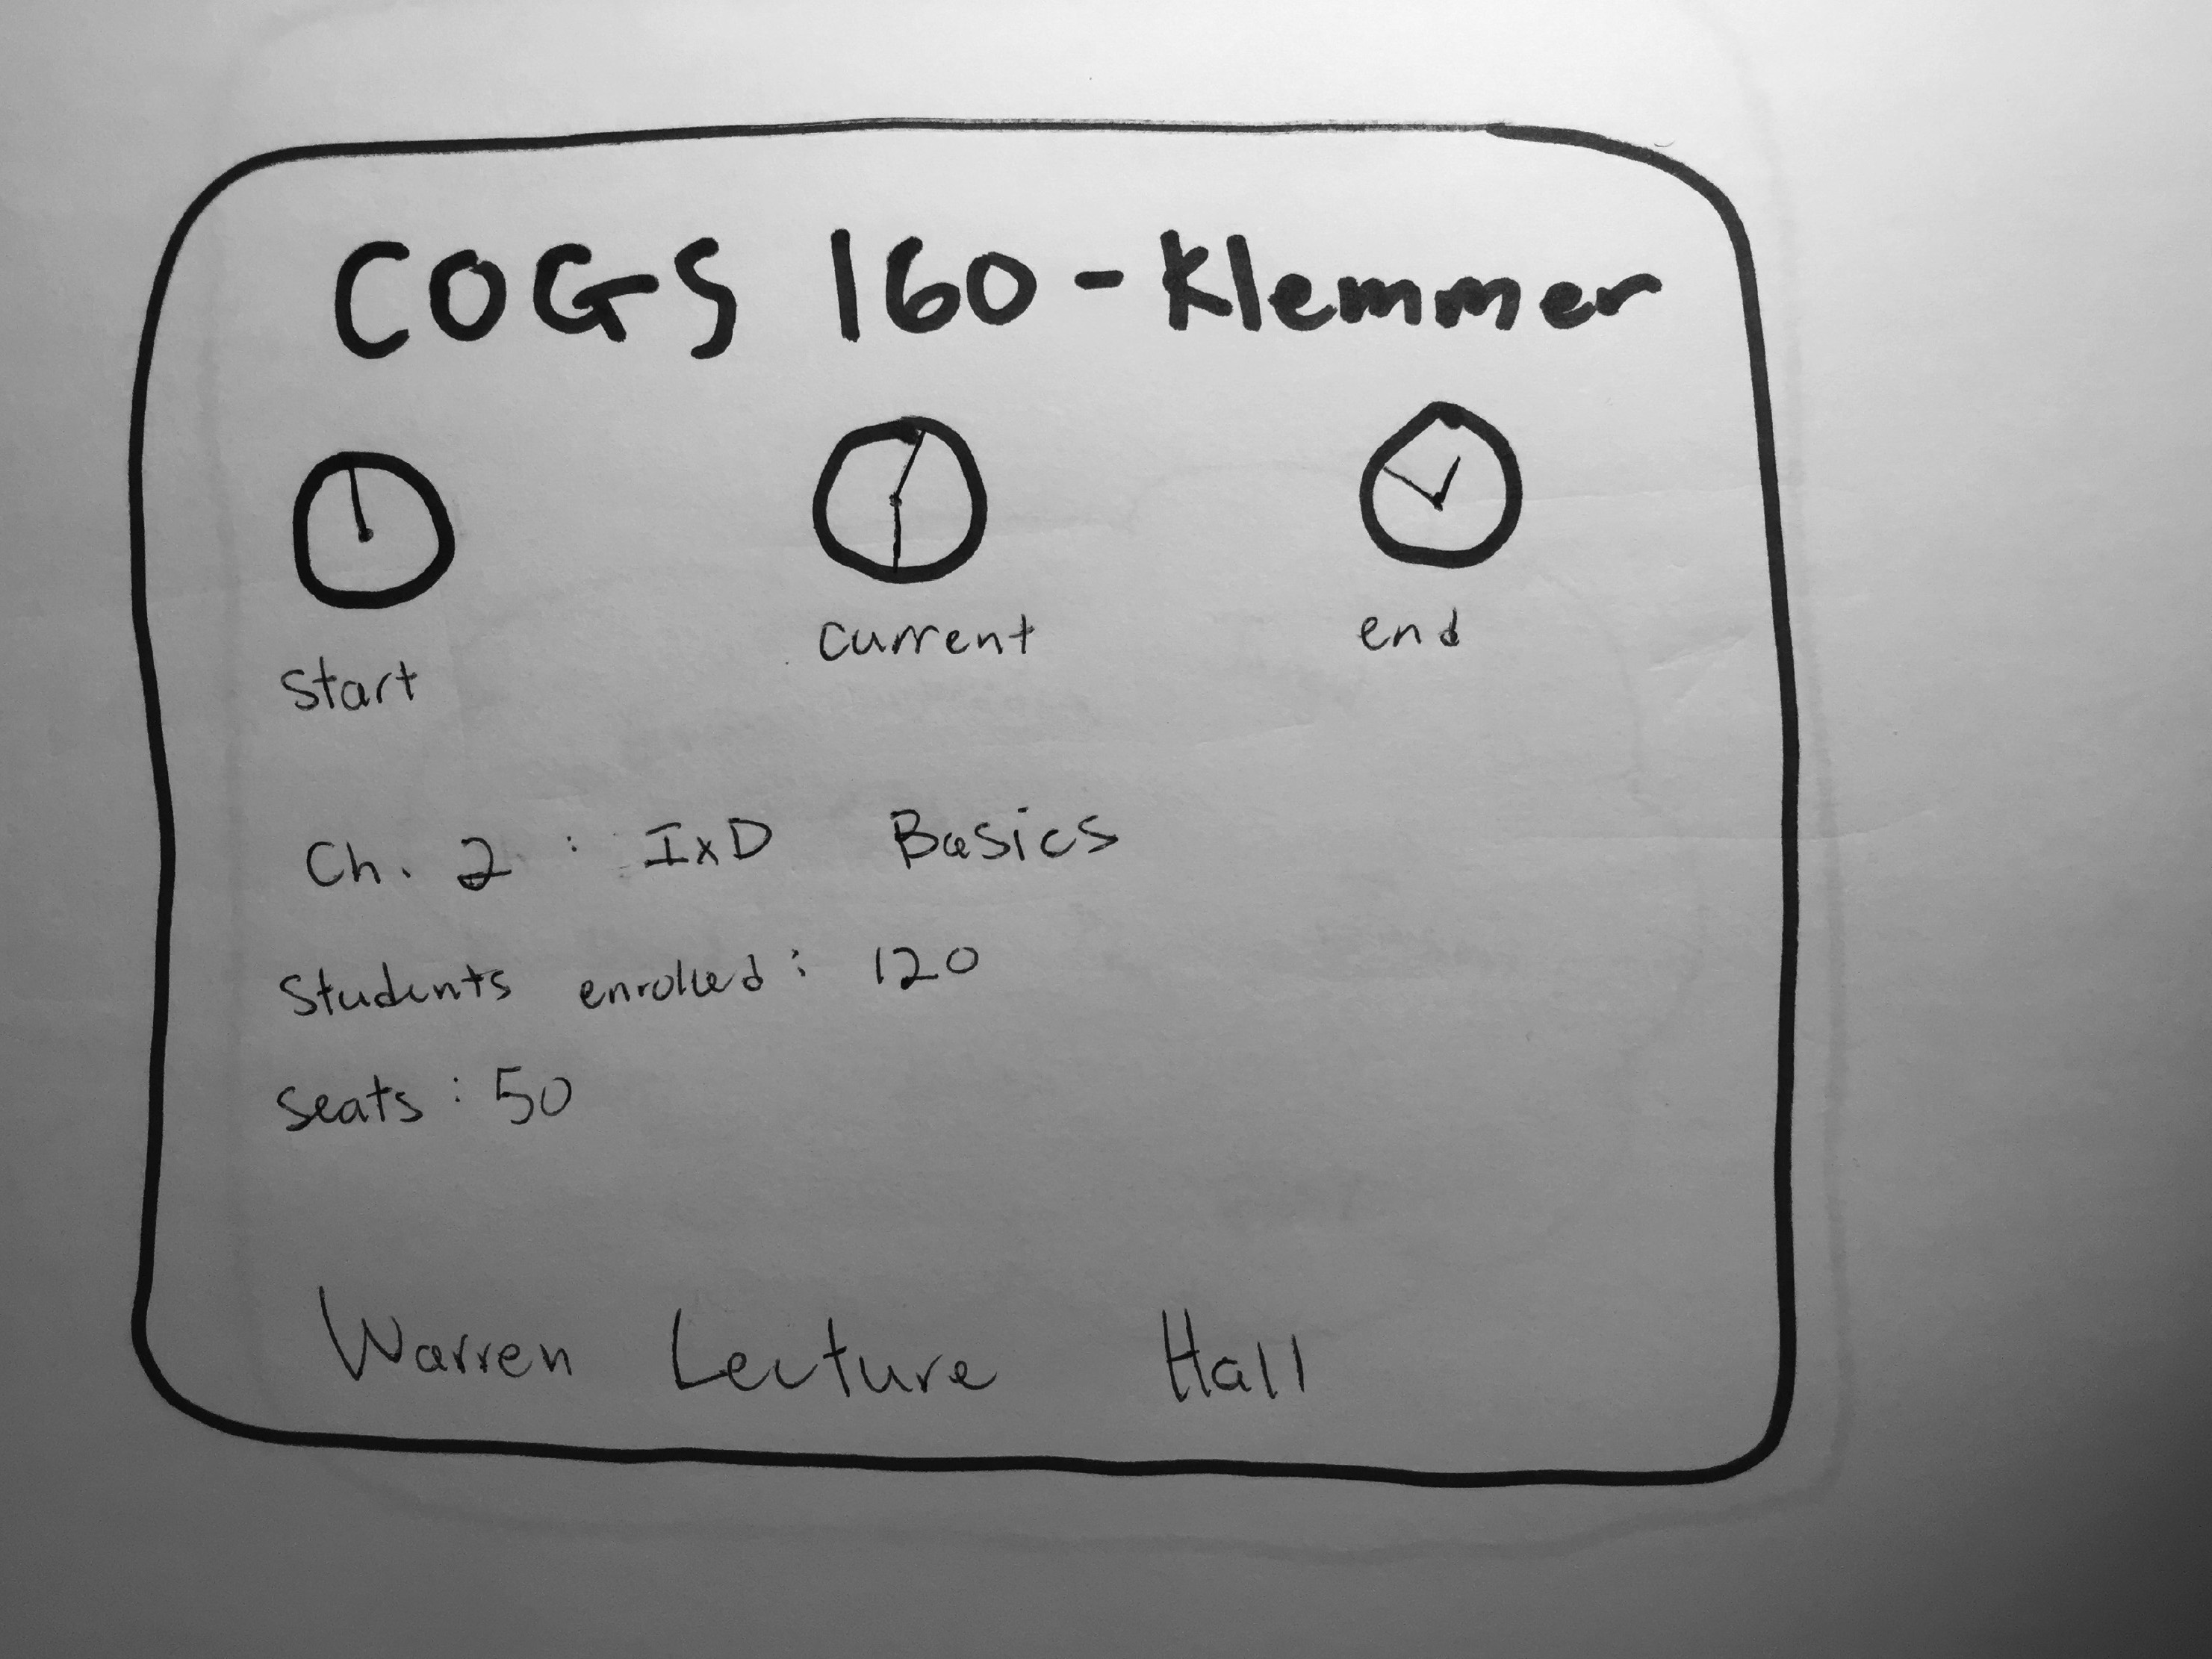 COGS 160 - Klemmer
start
current
end
Ch. 2 : IxD Basics
Students enrolled : 120
Seats : 50
Warren Lecture Hall